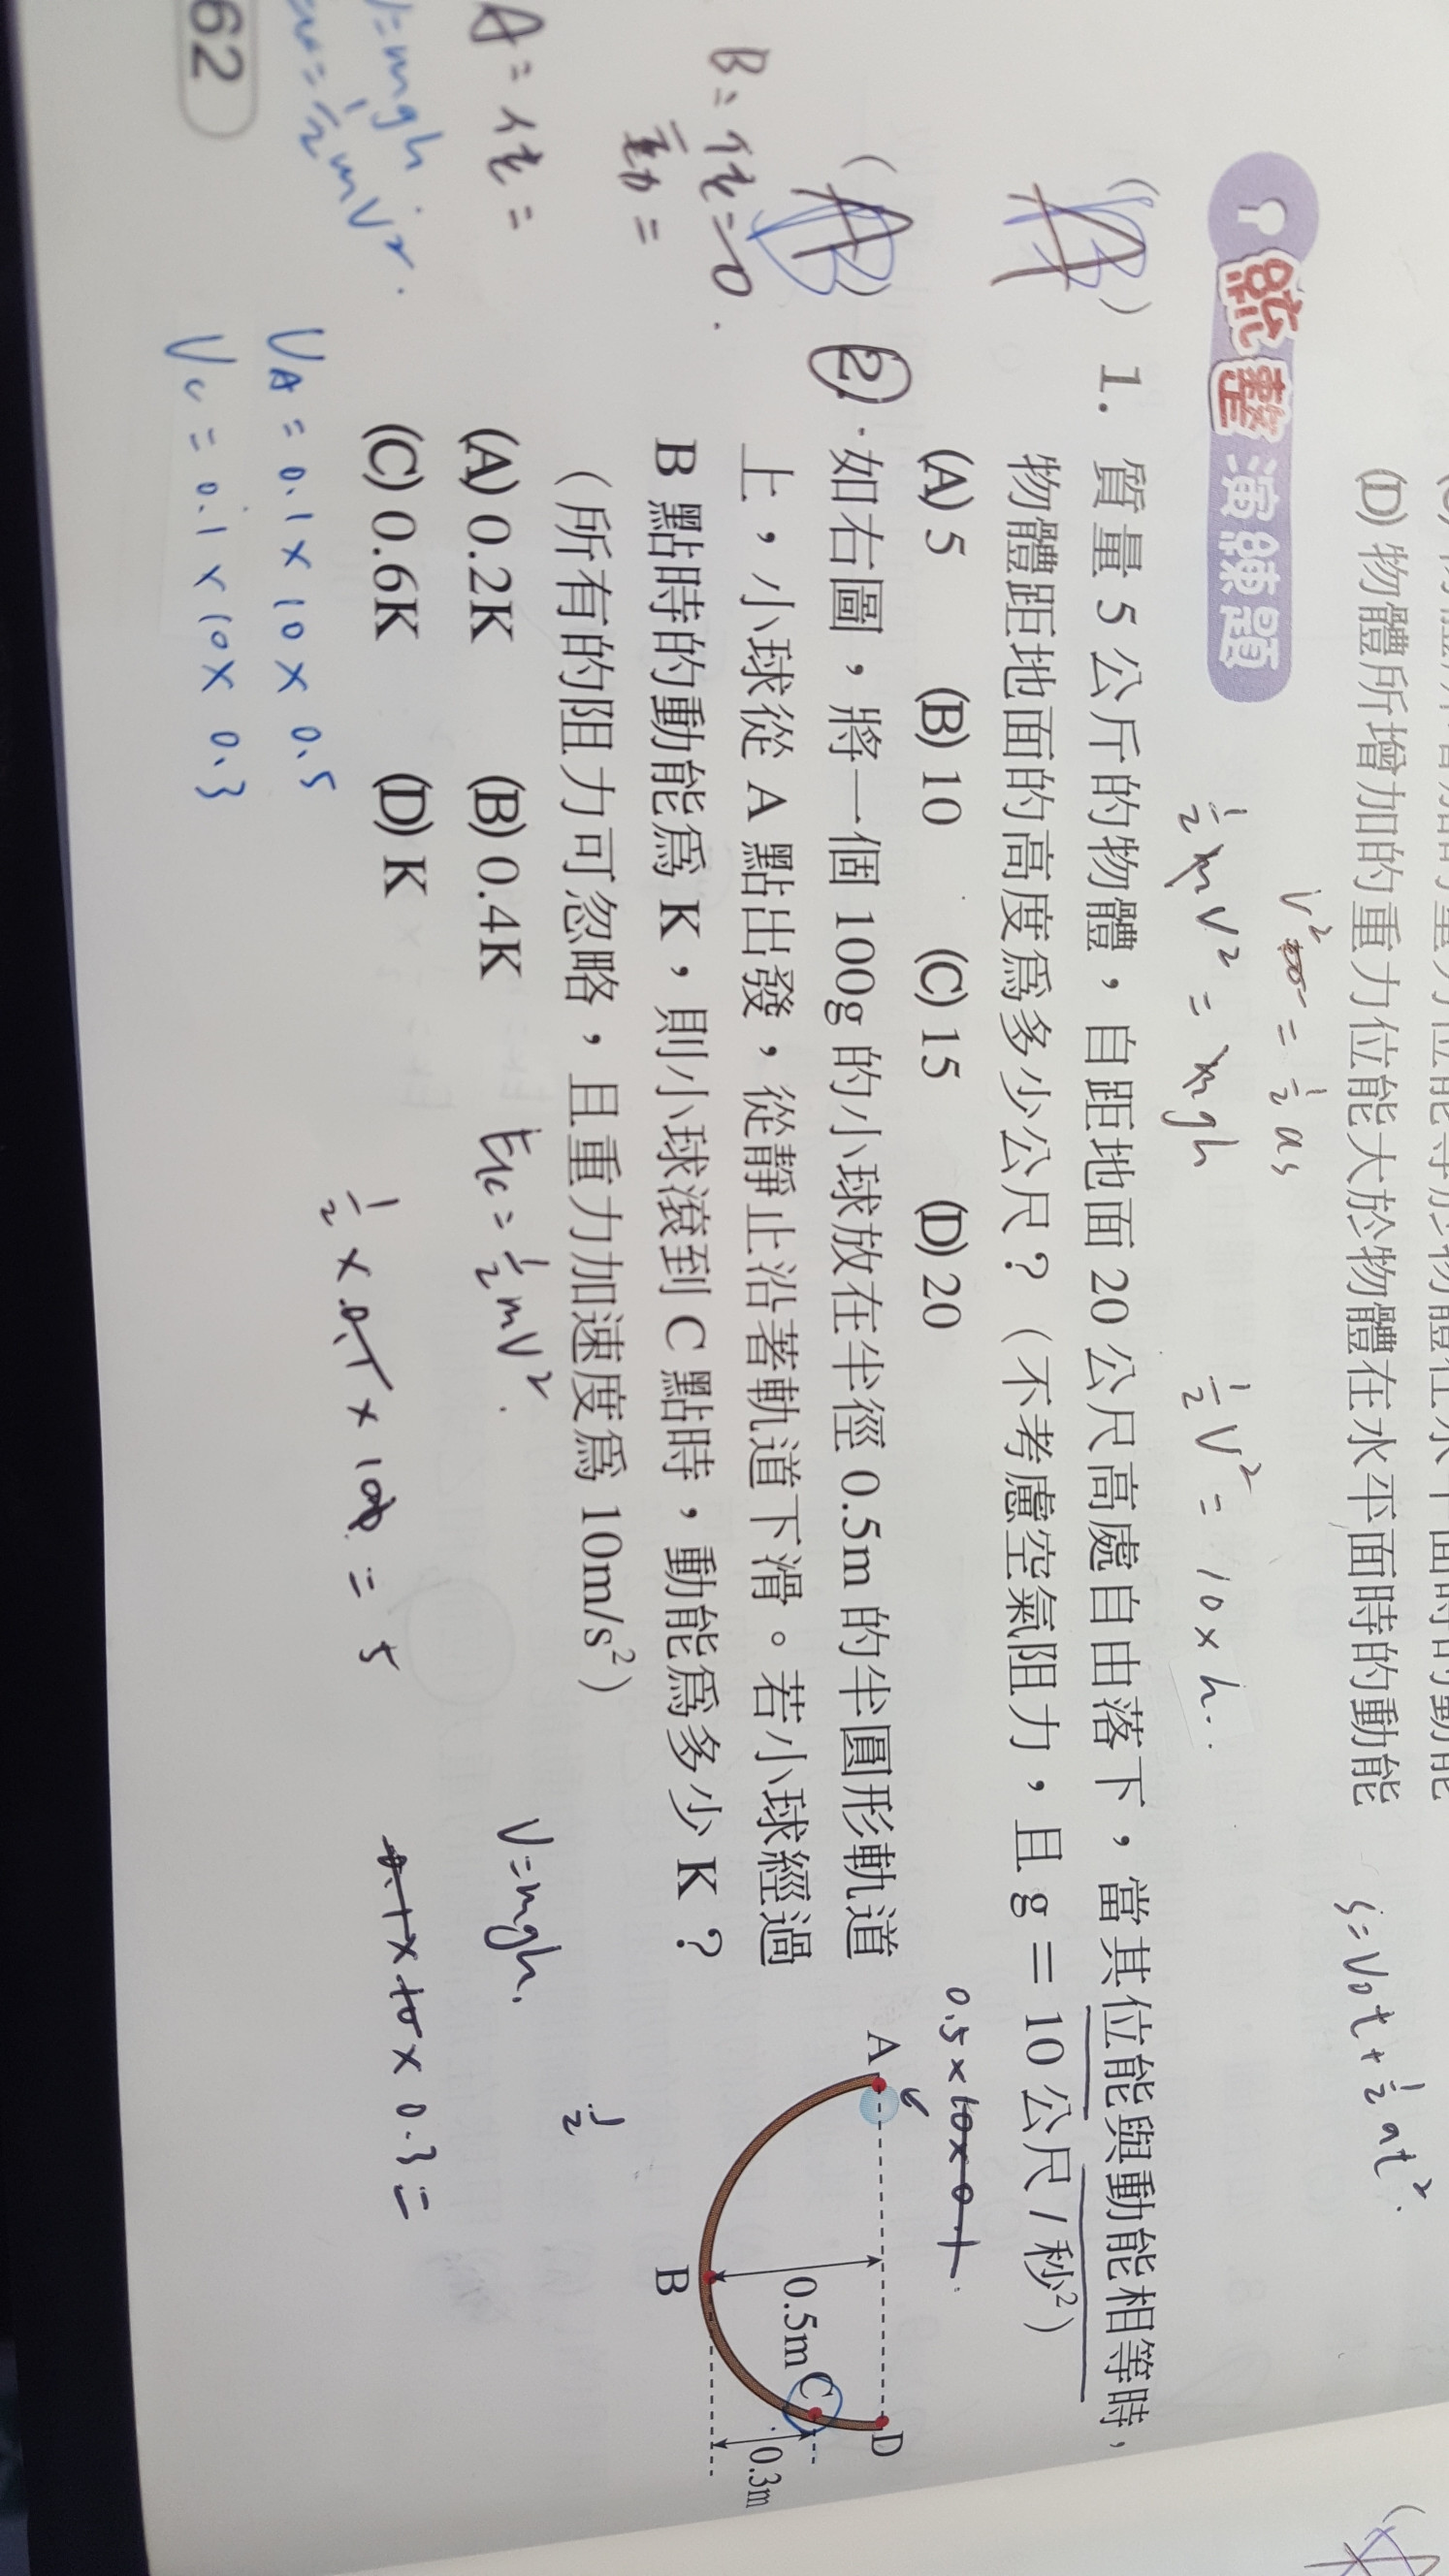 (D) 物體所增加的重力位能大於物體在水平面時的動能
S=V₀t+½at²
V²=½as
統整演練題
½mV²=mgh
½V²=10×h
( B ) 1. 質量 5 公斤的物體，自距地面 20 公尺高處自由落下，當其位能與動能相等時，
物體距地面的高度爲多少公尺？（不考慮空氣阻力，且 g = 10 公尺 / 秒²）
(A) 5 (B) 10 (C) 15 (D) 20
0.5×10×0.1
( B ) 2. 如右圖，將一個 100g 的小球放在半徑 0.5m 的半圓形軌道
上，小球從 A 點出發，從靜止沿著軌道下滑。若小球經過
B 點時的動能爲 K，則小球滾到 C 點時，動能爲多少 K？
（所有的阻力可忽略，且重力加速度爲 10m/s²）
(A) 0.2K (B) 0.4K
(C) 0.6K (D) K
A
D
C
B
0.5m
0.3m
B=位=0
動=
A=位=
=mgh
=½mV²
Ek=½mV²
U=mgh
½
½×0.1×100=5
0.1×10×0.3=
UA=0.1×10×0.5
Uc=0.1×10×0.3
62